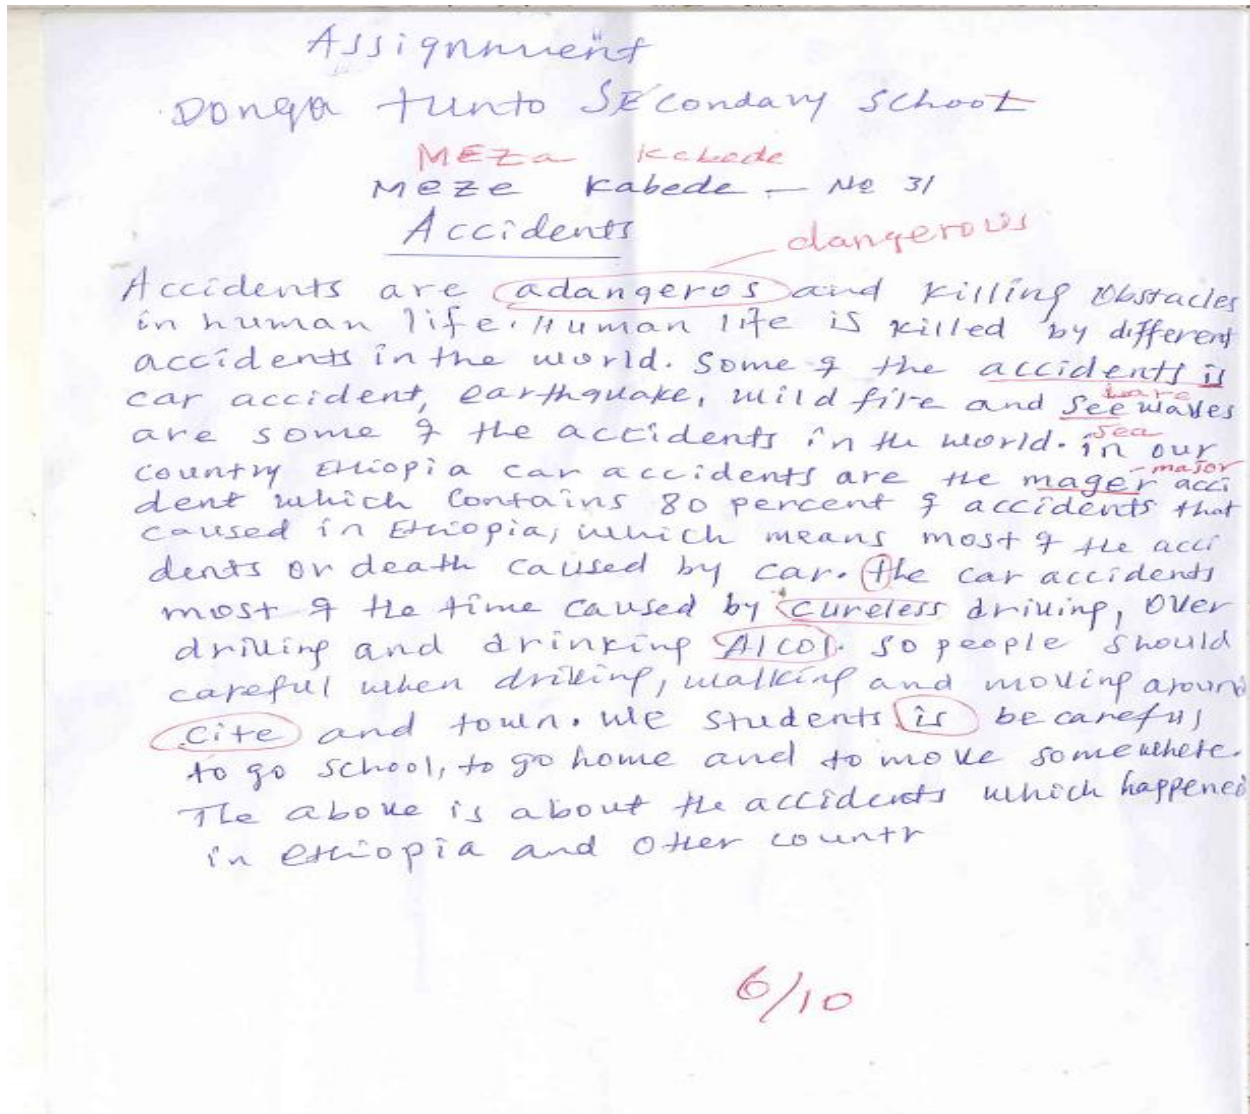 Assignment
Donga tunto SEcondary school
MEZa Kebede
Meze Kabede - No 31
Accidents
dangerous
Accidents are adangeros and killing Obstacles
in human life. Human life is killed by different
accidents in the world. Some of the accidents is
are
car accident, earthquake, wild fire and see waves
sea
are some of the accidents in the world. in our
major
country Ethiopia car accidents are the mager acci
dent which contains 80 percent of accidents that
caused in Ethiopia, which means most of the acci
dents or death caused by car. the car accidents
most of the time caused by cureless driving, over
driving and drinking Alcol. so people should
careful when driving, walking and moving around
cite and town. we students is be careful
to go school, to go home and to move somewhere.
The above is about the accidents which happened
in ethiopia and other countr
6/10